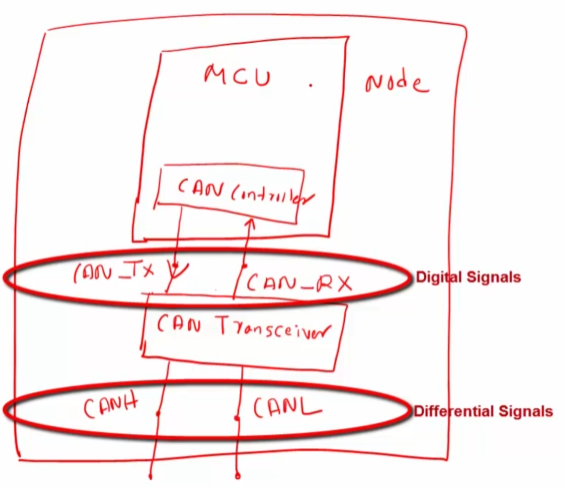 MCU
Node
CAN Controller
CAN_Tx
CAN_RX
Digital Signals
CAN Transceiver
CANH
CANL
Differential Signals